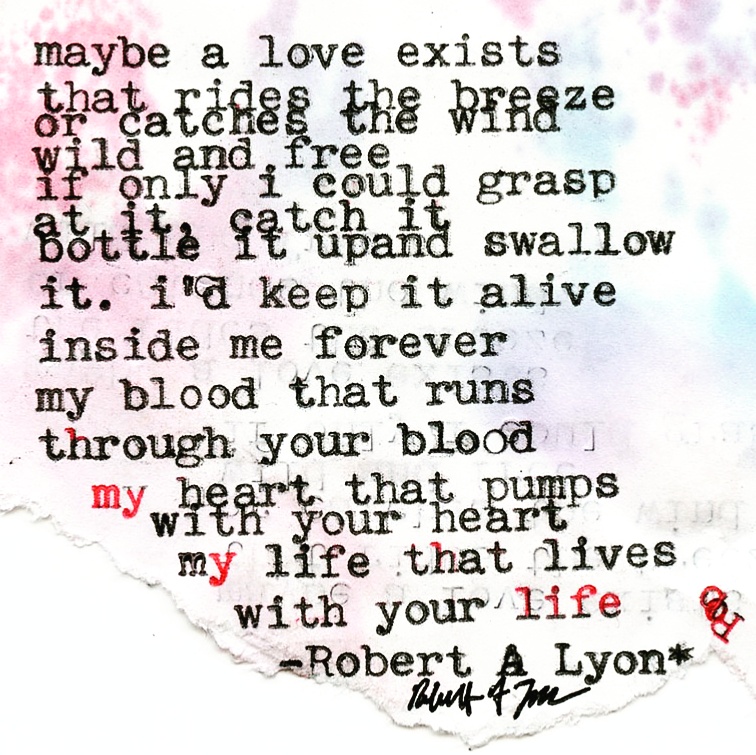 maybe a love exists
that rides the breeze
or catches the wind
wild and free
if only i could grasp
at it, catch it
bottle it upand swallow
it. i"d keep it alive
inside me forever
my blood that runs
through your blood
my heart that pumps
with your heart
my life that lives
with your life
-Robert A Lyon*